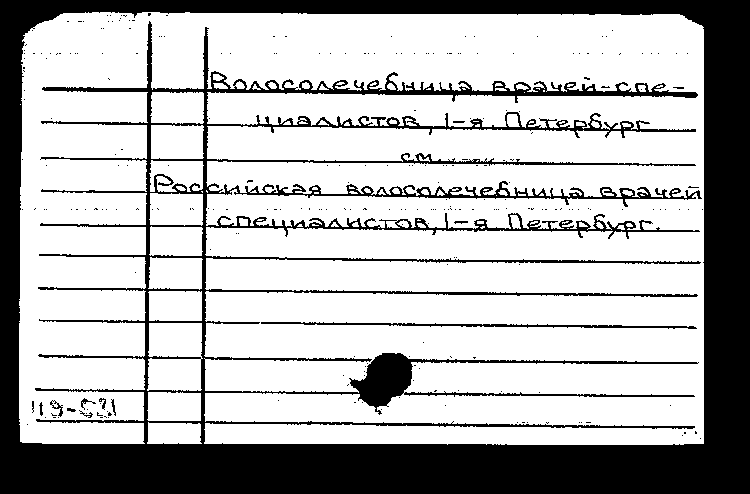 Волосолечебница врачей-спе-
циалистов, 1-я. Петербург
см.
Российская волосолечебница врачей
специалистов, 1-я Петербург.
119-521